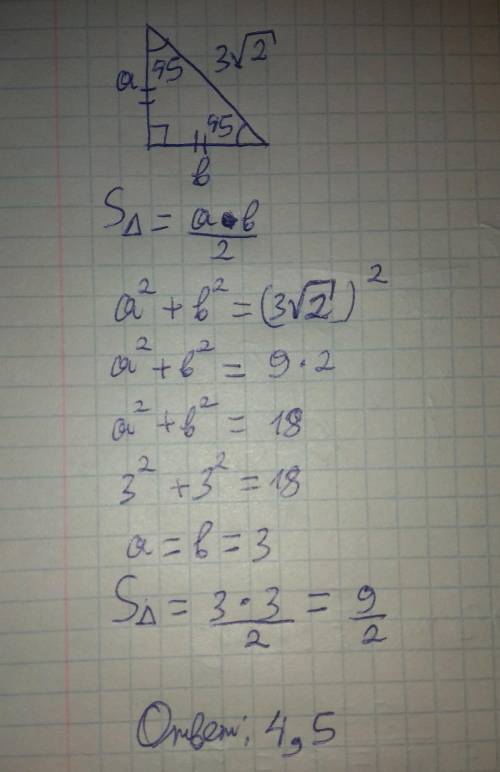 45 3√2
a
45
b
S△ = a·b/2
a² + b² = (3√2)²
a² + b² = 9·2
a² + b² = 18
3² + 3² = 18
a = b = 3
S△ = 3·3/2 = 9/2
Ответ: 4,5